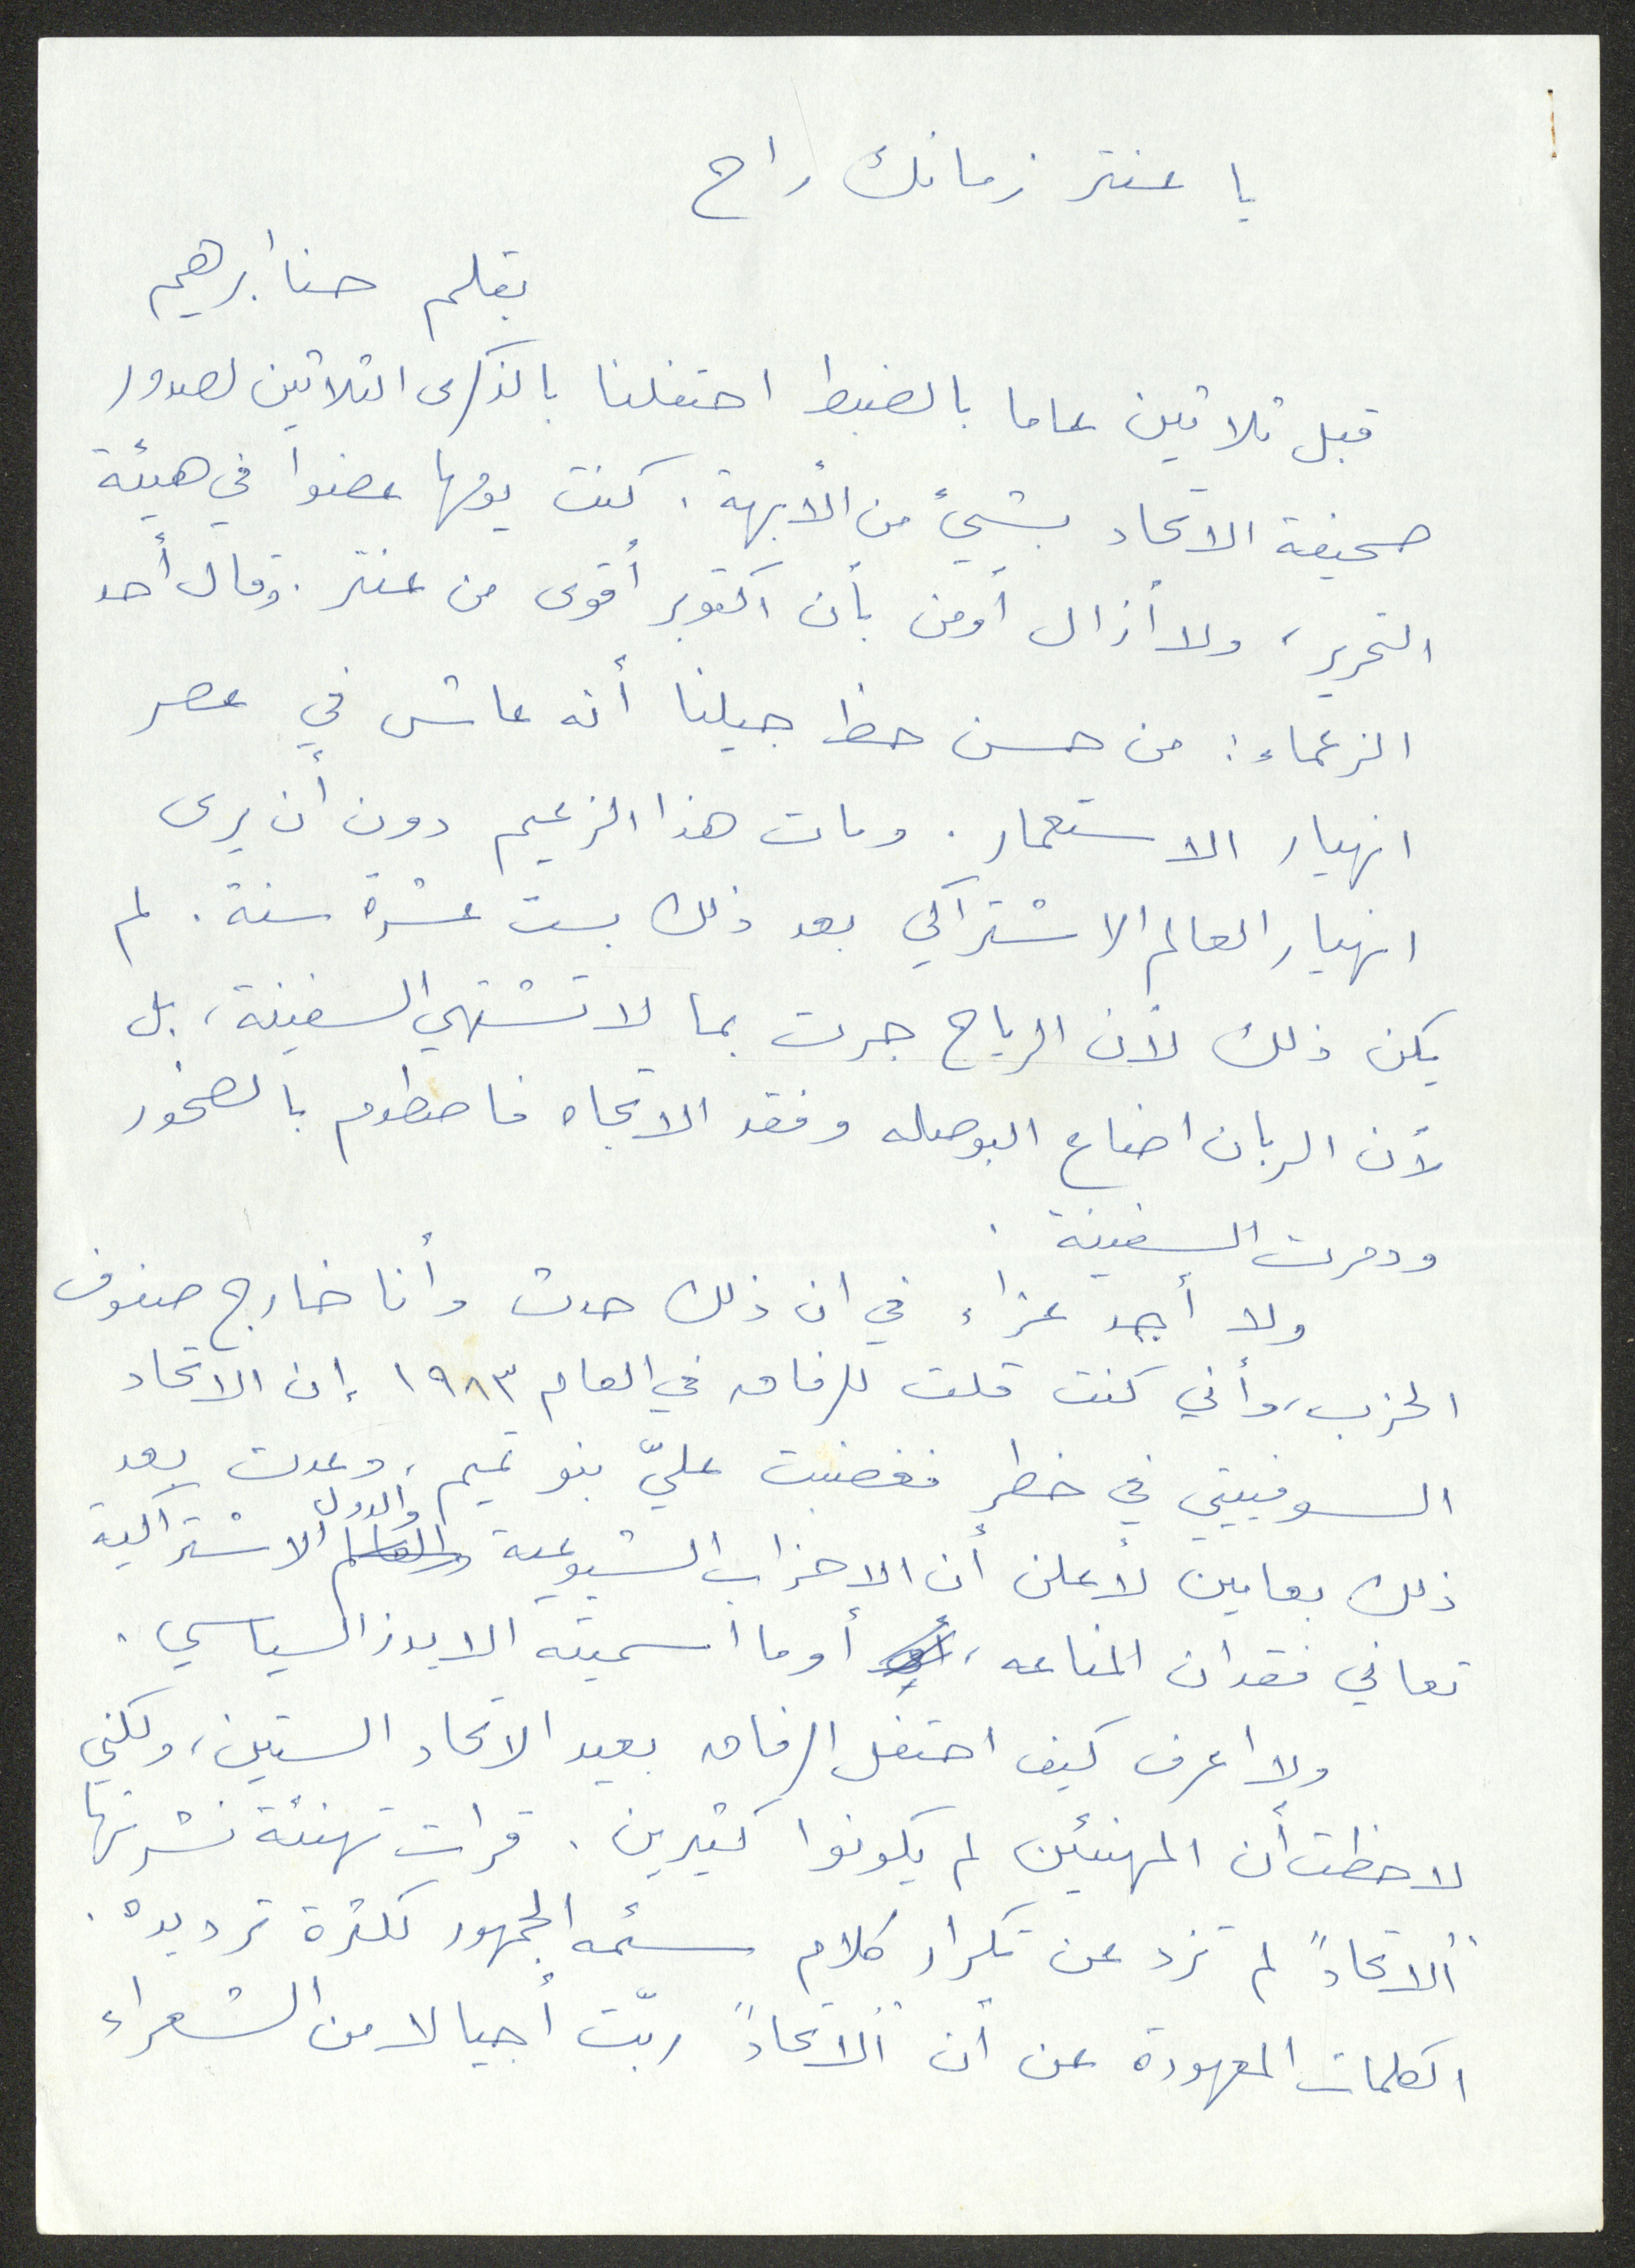 يا عنتر زمانك راح
بقلم حنا ابرهيم
قبل ثلاثين عاما بالضبط احتفلنا بالذكرى الثلاثين لصدور
صحيفة الاتحاد بشيءٍ من الأبهة. كنت يومها عضوا في هيئة
التحرير، ولا أزال أومن بأن اكتوبر أقوى من عنتر. وقال أحد
الزعماء: من حسن حظ جيلنا أنه عاش في عصر
انهيار الاستعمار. ومات هذا الزعيم دون أن يرى
انهيار العالم الاشتراكي بعد ذلك بست عشرة سنة. لم
يكن ذلك لأن الرياح جرت بما لا تشتهي السفينة، بل
لأن الربان اضاع البوصله وفقد الاتجاه فاصطدم بالصخور
ودمرت السفينة.
ولا أجد عزاء في ان ذلك حدث وأنا خارج صفوف
الحزب، وأني كنت قلت للرفاق في العام ١٩٨٣ إن الاتحاد
السوفييتي في خطر فغضبت عليّ بنو تميم، وعدت بعد
ذلك بعامين لأعلن أن الاحزاب الشيوعية والدول الاشتراكية
تعاني فقدان المناعه، أو ما اسميته الايدز السياسي.
ولا اعرف كيف احتفل الرفاق بعيد الاتحاد الستين، ولكني
لاحظت أن المهنئين لم يكونوا كثيرين. قرات تهنئة نشرتها
"الاتحاد" لم تزد عن تكرار كلام سئمه الجمهور لكثرة ترديده.
الكلمات المعهودة عن أن "الاتحاد" ربّت أجيالا من الشعراء